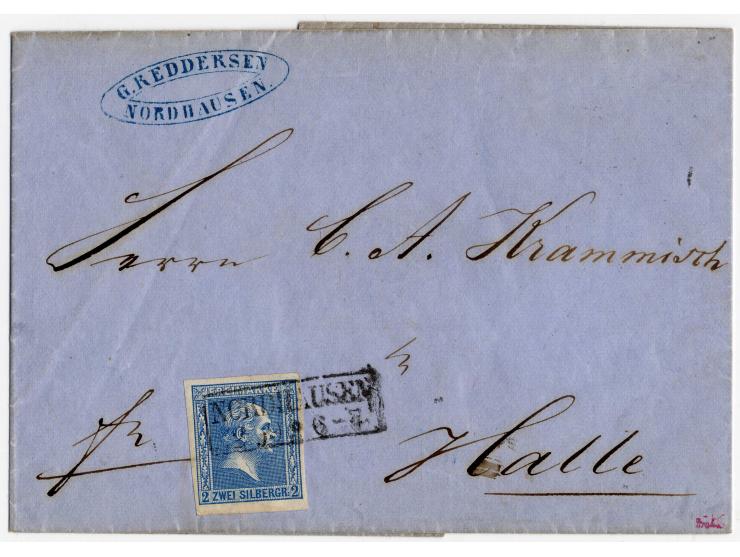 G. REDDERSEN
NORDHAUSEN.
Herrn C. A. Krammisch
fr
Halle
FREIMARKE
NORDHAUSEN
6-7.
2 ZWEI SILBERGR. 2